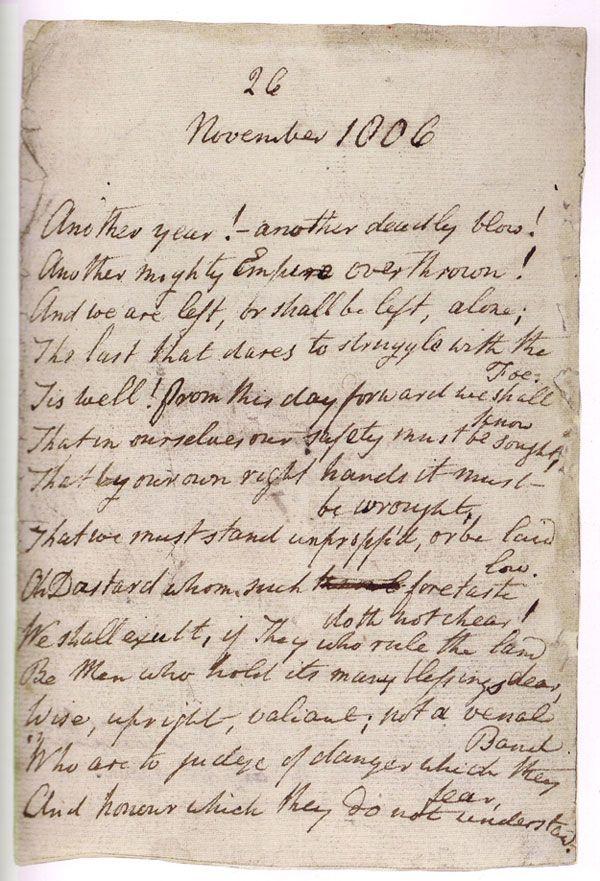 26
November 1806
Another year! – another deadly blow!
Another mighty Empire overthrown!
And we are left, or shall be left, alone;
The last that dares to struggle with the
Foe.
Tis well! from this day forward we shall
know
That in ourselves our safety must be sought,
That by our own right hands it must
be wrought,
That we must stand unpropp'd, or be laid
low.
Oh Dastard whom such foretaste
doth not chear!
We shall exult, if They who rule the land
Be Men who hold its many blessings dear,
Wise, upright, valiant; not a venal
Band
Who are to judge of danger which they
fear,
And honour which they do not understand.